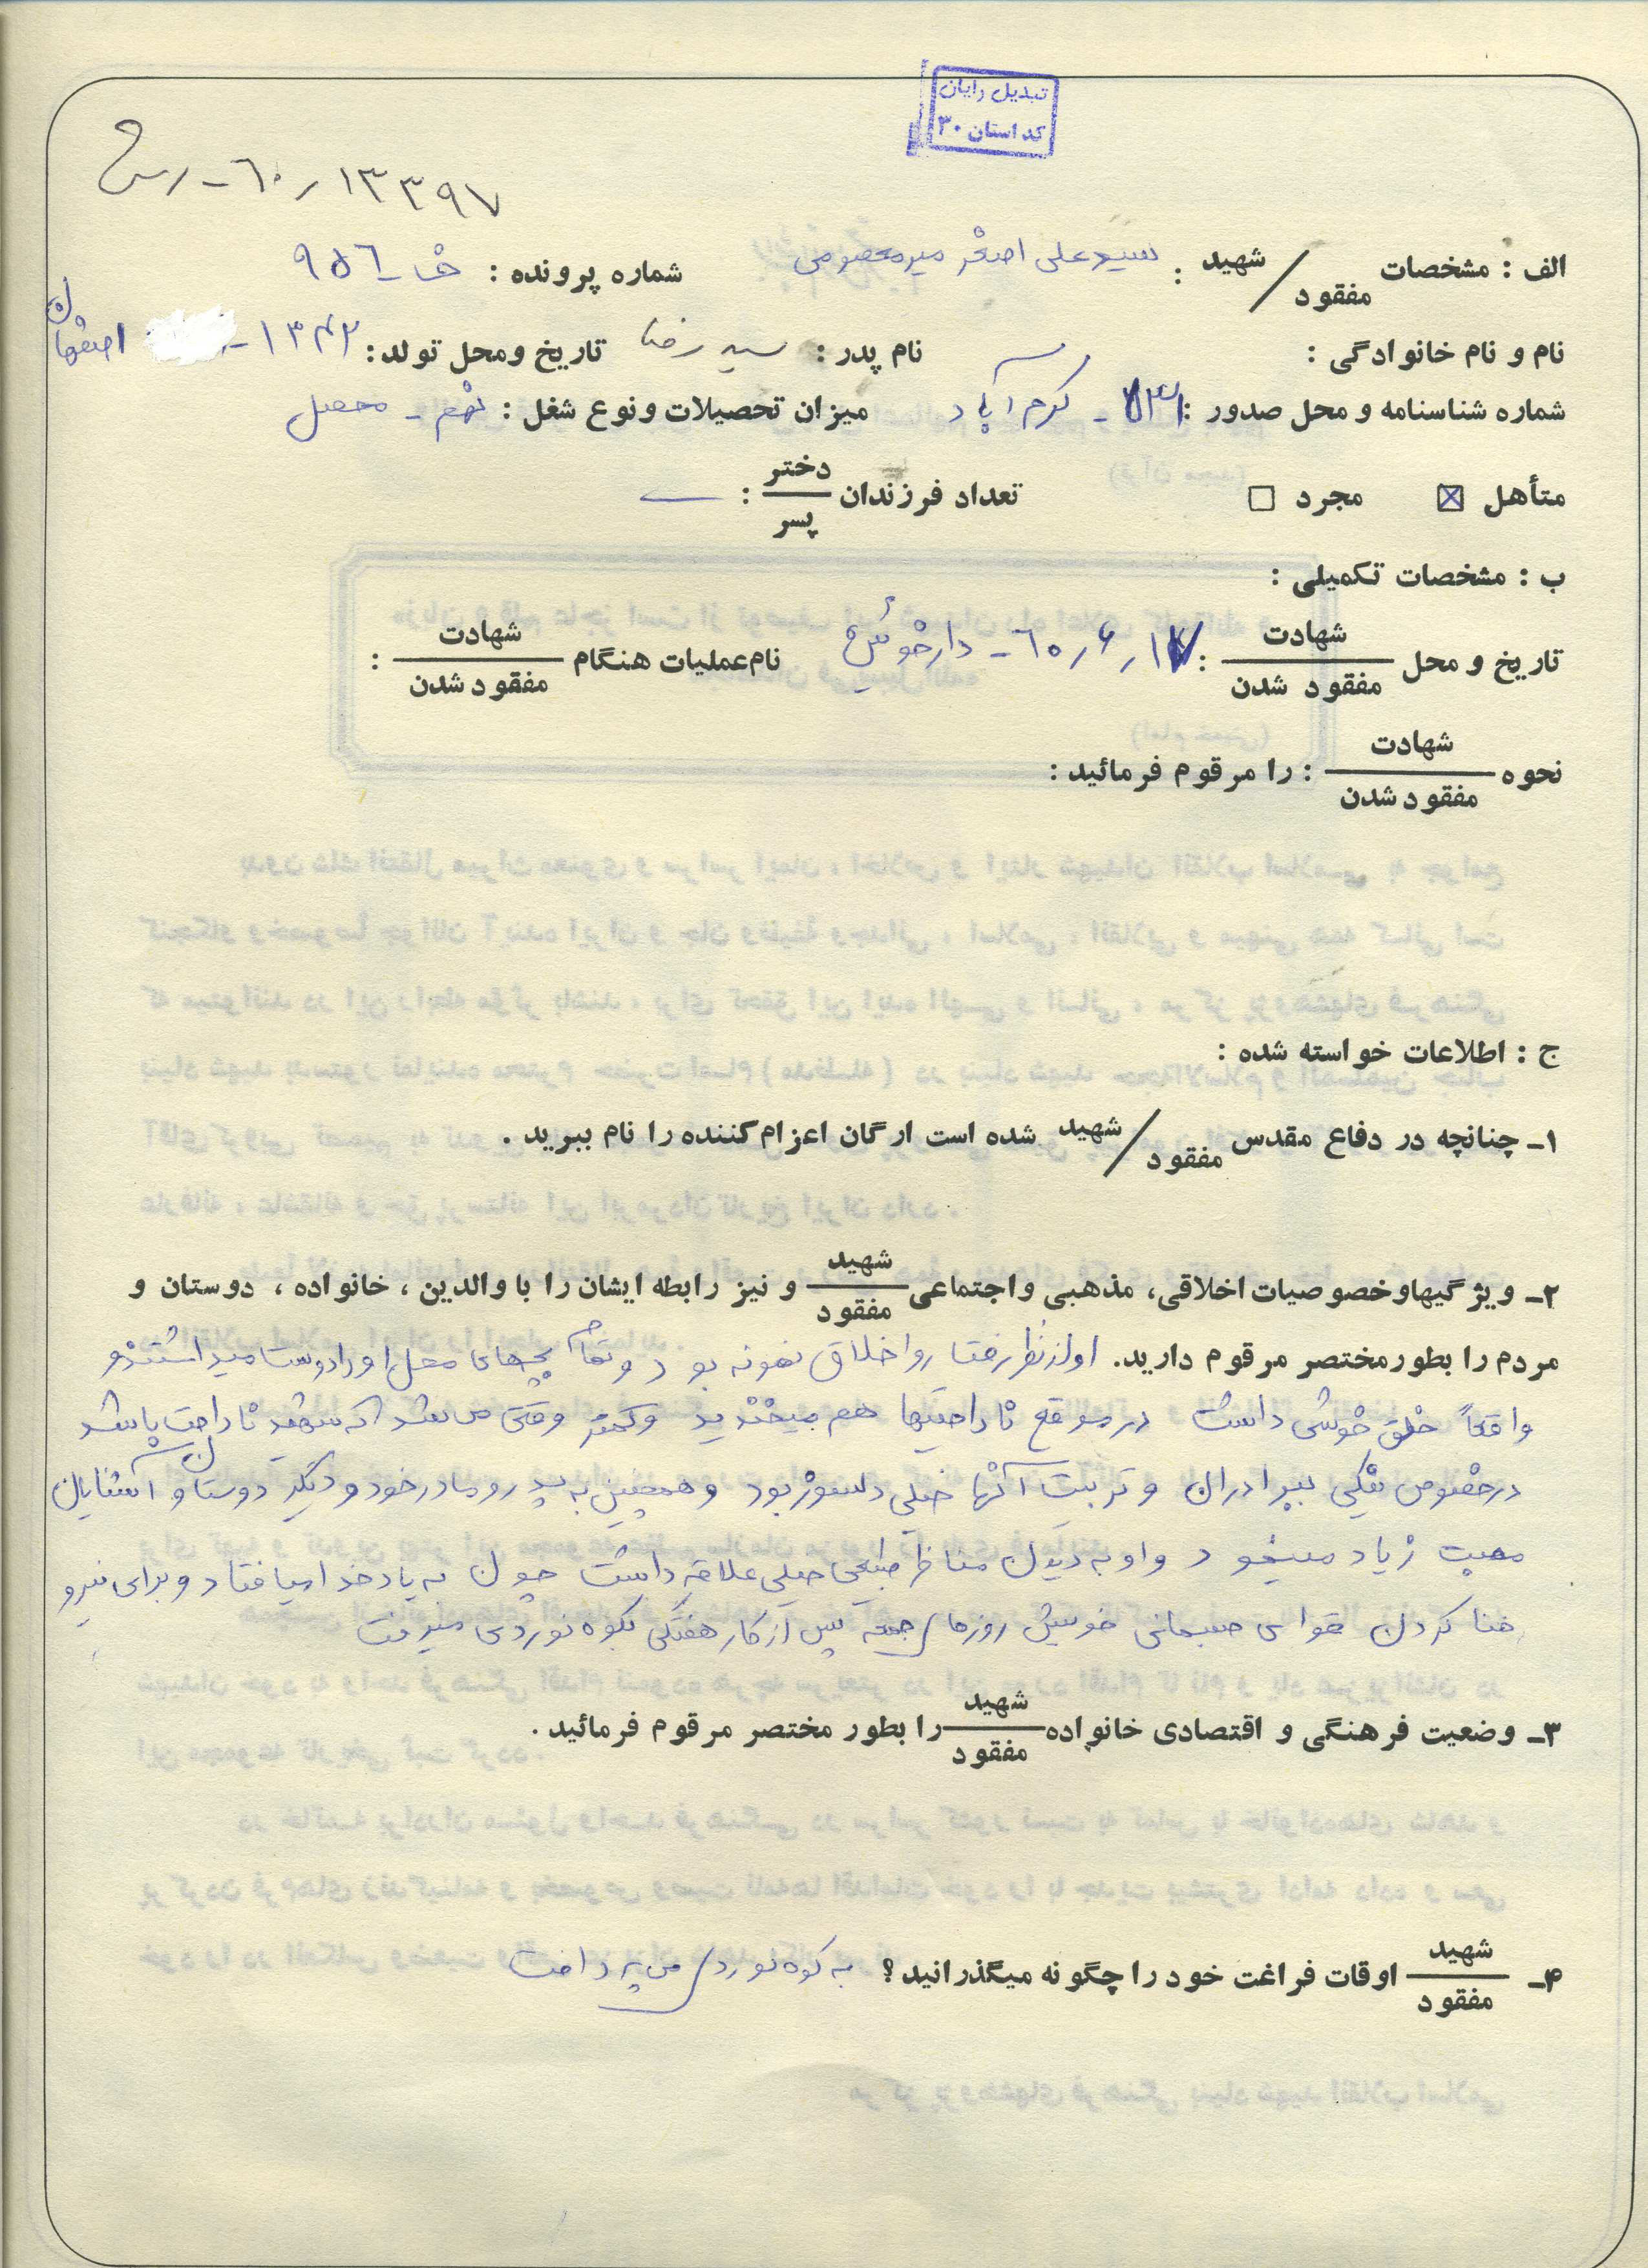 تبدیل رایان
کد استان ۳۰
۱۳۳۹۷ / ۶۰ -
الف : مشخصات شهید / مفقود : سید علی اصغر میرمعصومی شماره پرونده : ۹۵۶
نام و نام خانوادگی : نام پدر : سید رضا تاریخ ومحل تولد : ۱۳۴۲ - اصفهان
شماره شناسنامه و محل صدور : - کرم آباد میزان تحصیلات و نوع شغل : نهم - محصل
متأهل ☒ مجرد ☐ تعداد فرزندان دختر / پسر : —
ب : مشخصات تکمیلی :
تاریخ و محل شهادت / مفقود شدن : ۱۷ / ۶ / ۶۰ - دارخوئین نام عملیات هنگام شهادت / مفقود شدن :
نحوه شهادت / مفقود شدن : را مرقوم فرمائید :
ج : اطلاعات خواسته شده :
۱ـ چنانچه در دفاع مقدس شهید / مفقود شده است ارگان اعزام کننده را نام ببرید .
۲ـ ویژگیها و خصوصیات اخلاقی، مذهبی و اجتماعی شهید / مفقود و نیز رابطه ایشان را با والدین ، خانواده ، دوستان و
مردم را بطور مختصر مرقوم دارید. او از نظر رفتار و اخلاق نمونه بود و تمام بچه‌های محل او را دوست میداشتند و
واقعاً خلق خوشی داشت در موقع ناراحتیها هم میخندید و کمتر وقتی می‌شد که شهید ناراحت باشد
در خصوص برادران و تربیت آنها خیلی دلسوز بود و همچنین به پدر و مادر خود و دیگر دوستان و آشنایان
محبت زیاد مینمود و او به دیدن مناظر طبیعی خیلی علاقه داشت چون به یاد خدا میافتاد و برای نیرو
کردن قوای جسمانی خویش روزهای جمعه پس از کار هفتگی بکوه نوردی میرفت
۳ـ وضعیت فرهنگی و اقتصادی خانواده شهید / مفقود را بطور مختصر مرقوم فرمائید .
۴ـ شهید / مفقود اوقات فراغت خود را چگونه میگذرانید ؟ به کوه نوردی می پرداخت